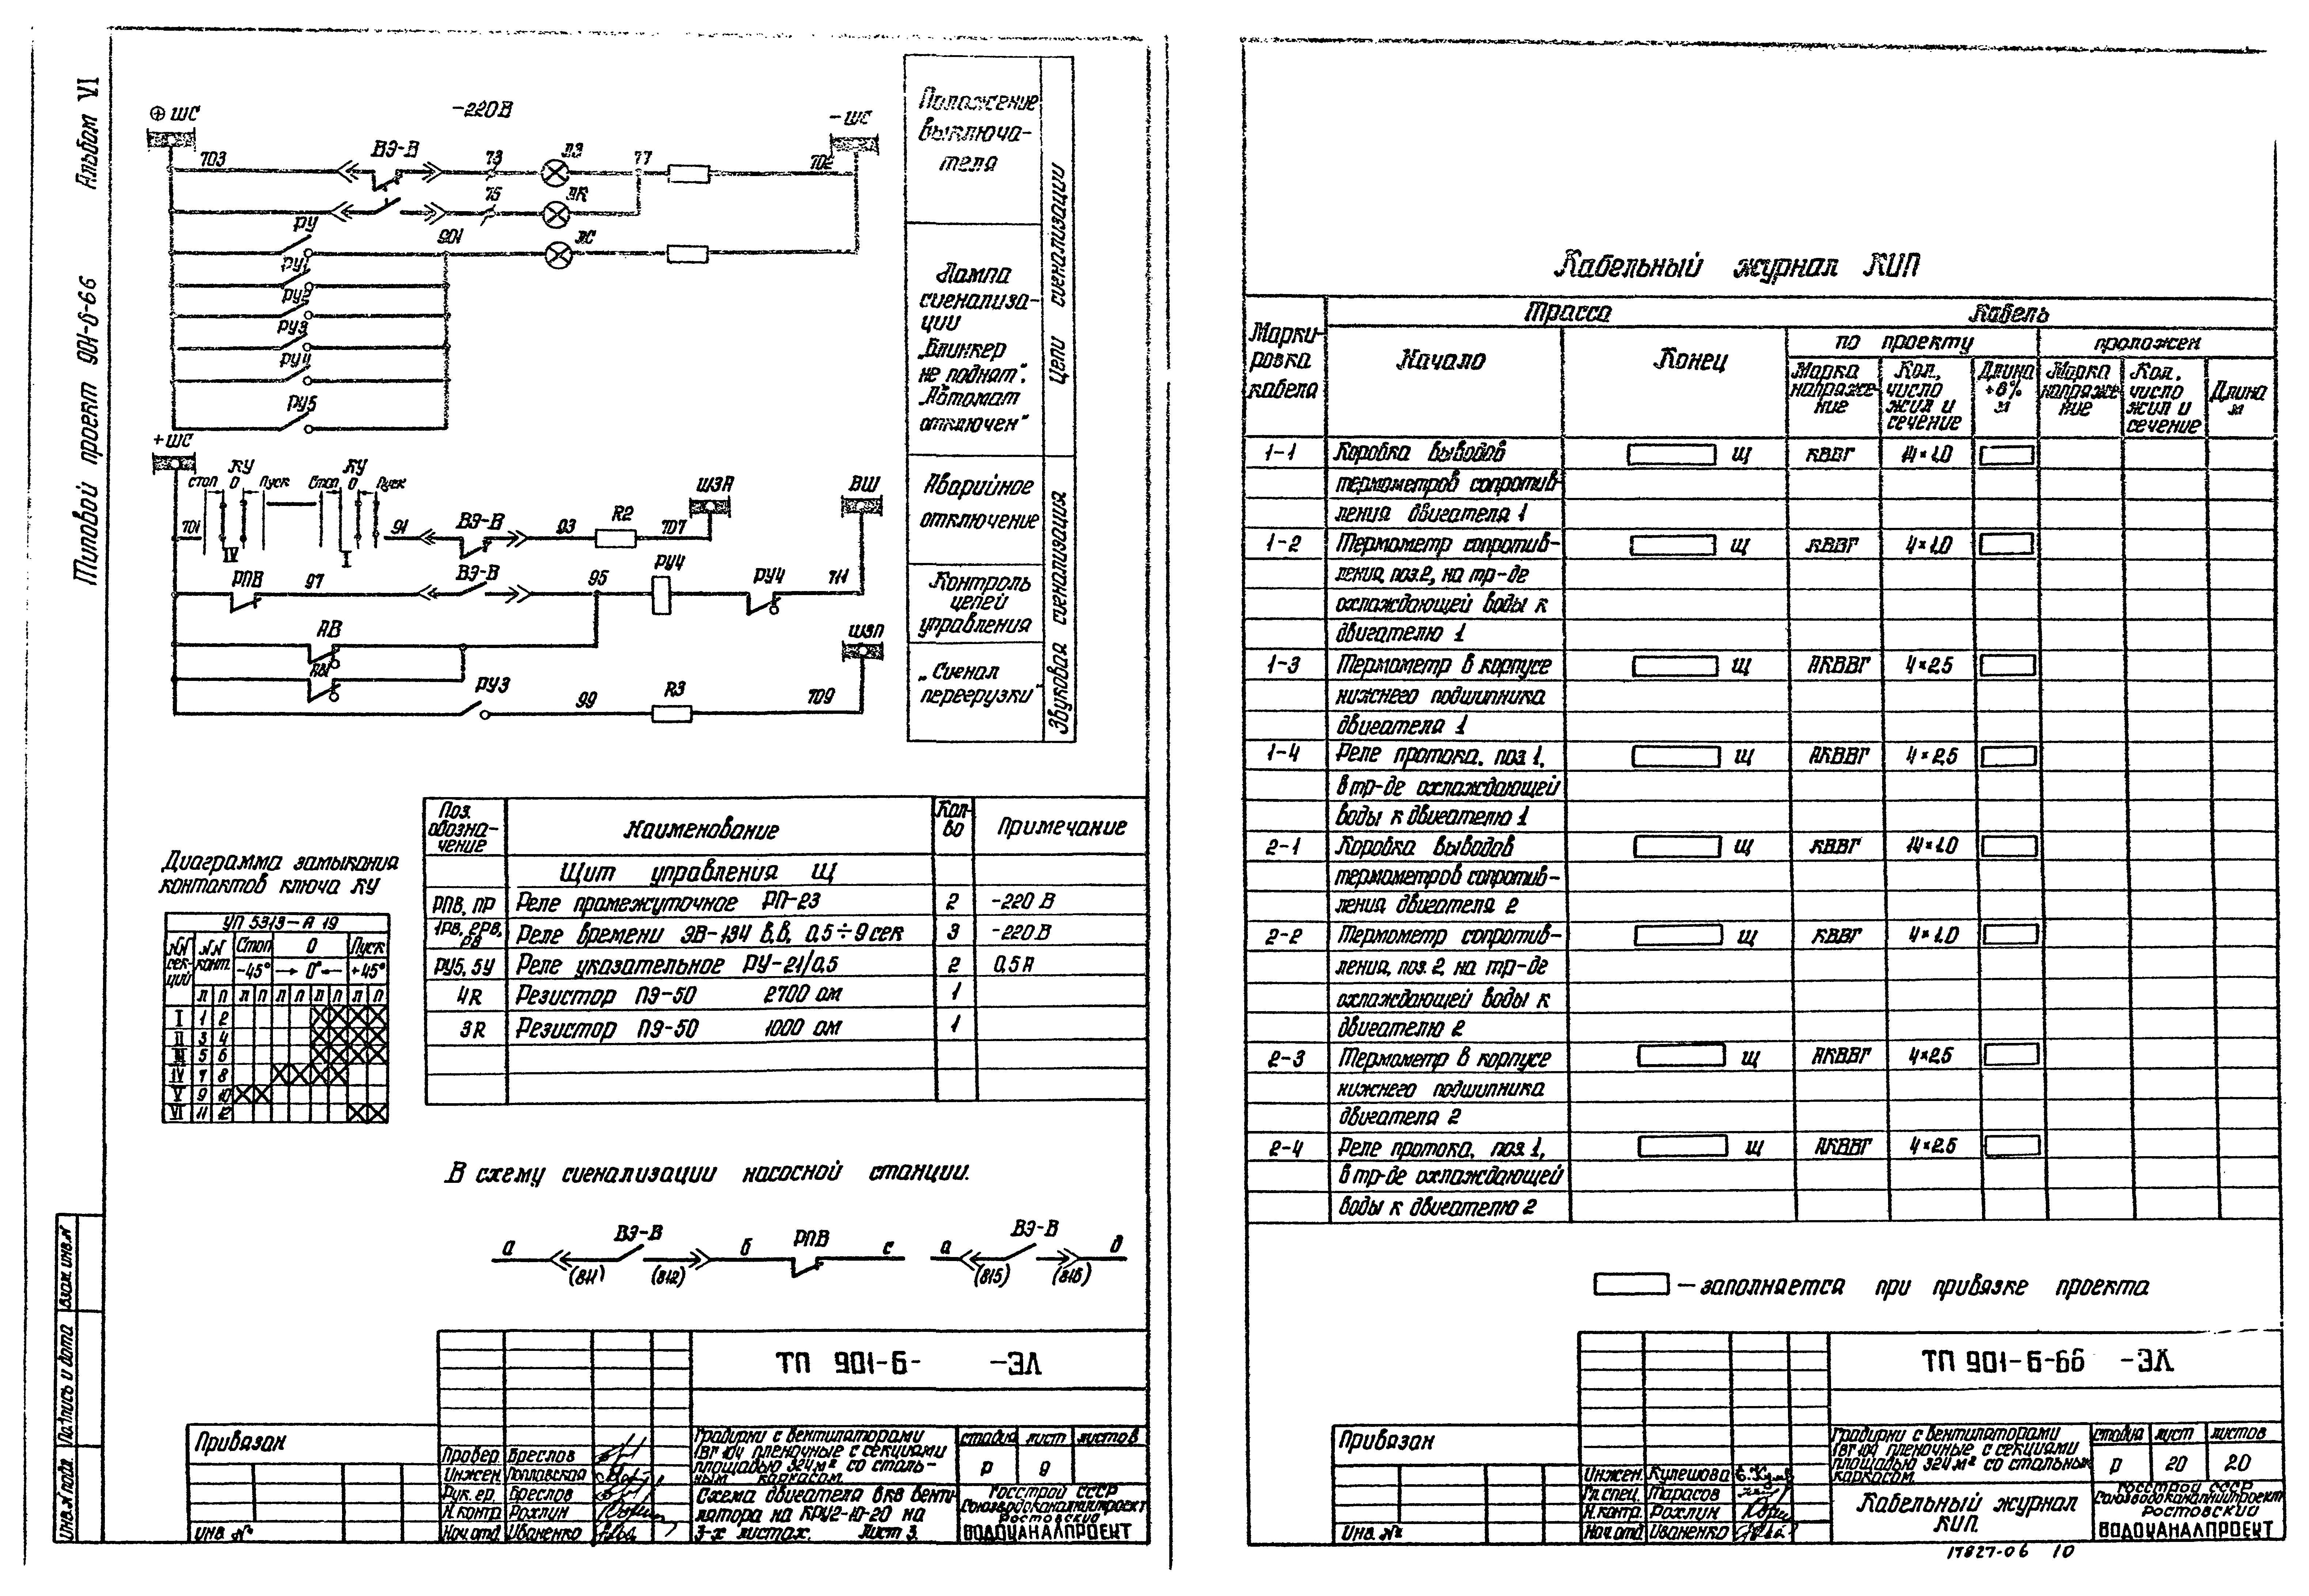 Альбом VI
Типовой проект 901-6-66
⊕ ШС
-220В
-ШС
703
ВЭ-В
73
ЛЗ
77
702
75
ЛК
РУ
901
ЛС
РУ1
РУ2
РУ3
РУ4
РУ5
+ШС
КУ
КУ
Стоп 0 Пуск
Стоп 0 Пуск
701
IV
I
91
ВЭ-В
93
R2
707
ШЗА
ВШ
РПВ
97
ВЭ-В
95
РУ4
РУ4
711
АВ
АВ1
ШЗП
РУ3
99
R3
709
Положение
выключа-
теля
Лампа
сигнализа-
ции
„Блинкер
не поднят".
„Автомат
отключен"
Цепи сигнализации
Аварийное
отключение
Контроль
цепей
управления
„Сигнал
перегрузки"
Звуковая сигнализация
Поз. обозна-чение
Наименование
Кол-во
Примечание
Щит управления Щ
РПВ, ПР Реле промежуточное РП-23 2 -220 В
1РВ, 2РВ, РВ Реле времени ЭВ-134 В,В, 0,5÷9 сек 3 -220 В
РУ5, 5У Реле указательное РУ-21/0,5 2 0,5 А
4R Резистор ПЭ-50 2700 ом 1
3R Резистор ПЭ-50 1000 ом 1
Диаграмма замыкания
контактов ключа КУ
УП 5313-А 19
№№ сек-ций
№№ конт.
Стоп 0 Пуск
-45° →0°← +45°
Л П Л П Л П Л П Л П
I 1 2
II 3 4
III 5 6
IV 7 8
V 9 10
VI 11 12
В схему сигнализации насосной станции.
а ВЭ-В б РПВ с
(811) (812)
а ВЭ-В д
(815) (816)
Взам. инв. №
Подпись и дата
Инв. № подл.
Привязан
Инв. №
ТП 901-6- -ЭЛ
Провер. Бреслов
Инжен. Поплавская
Рук. гр. Бреслов
Н.контр. Рохлин
Нач.отд. Иваненко
Градирни с вентиляторами
1ВГ 104 пленочные с секциями
площадью 324 м² со сталь-
ным каркасом.
стадия лист листов
Р 9
Схема двигателя 6кВ венти-
лятора на КРУ2-10-20 на
3-х листах. Лист 3.
Госстрой СССР
Союзводоканалниипроект
Ростовский
ВОДОКАНАЛПРОЕКТ
Кабельный журнал КИП
Марки-ровка кабеля
Трасса
Кабель
Начало
Конец
по проекту
проложен
Марка напряже-ние
Кол, число жил и сечение
Длина +6% м
Марка напряже-ние
Кол. число жил и сечение
Длина м
1-1 Коробка выводов Щ КВВГ 14×1.0
термометров сопротив-
ления двигателя 1
1-2 Термометр сопротив- Щ КВВГ 4×1.0
ления, поз.2, на тр-де
охлаждающей воды к
двигателю 1
1-3 Термометр в корпусе Щ АКВВГ 4×2.5
нижнего подшипника
двигателя 1
1-4 Реле протока, поз 1, Щ АКВВГ 4×2,5
в тр-де охлаждающей
воды к двигателю 1
2-1 Коробка выводов Щ КВВГ 14×1.0
термометров сопротив-
ления двигателя 2
2-2 Термометр сопротив- Щ КВВГ 4×1.0
ления, поз. 2, на тр-де
охлаждающей воды к
двигателю 2
2-3 Термометр в корпусе Щ АКВВГ 4×2.5
нижнего подшипника
двигателя 2
2-4 Реле протока, поз 1, Щ АКВВГ 4×2.5
в тр-де охлаждающей
воды к двигателю 2
– заполняется при привязке проекта
Привязан
Инв. №
ТП 901-6-66 -ЭЛ
Инжен. Кулешова
Гл.спец. Тарасов
Н.контр. Рохлин
Нач.отд. Иваненко
Градирни с вентиляторами
1ВГ 104 пленочные с секциями
площадью 324 м² со стальным
каркасом.
стадия лист листов
Р 20 20
Кабельный журнал
КИП.
Госстрой СССР
Союзводоканалниипроект
Ростовский
ВОДОКАНАЛПРОЕКТ
17827-06 10